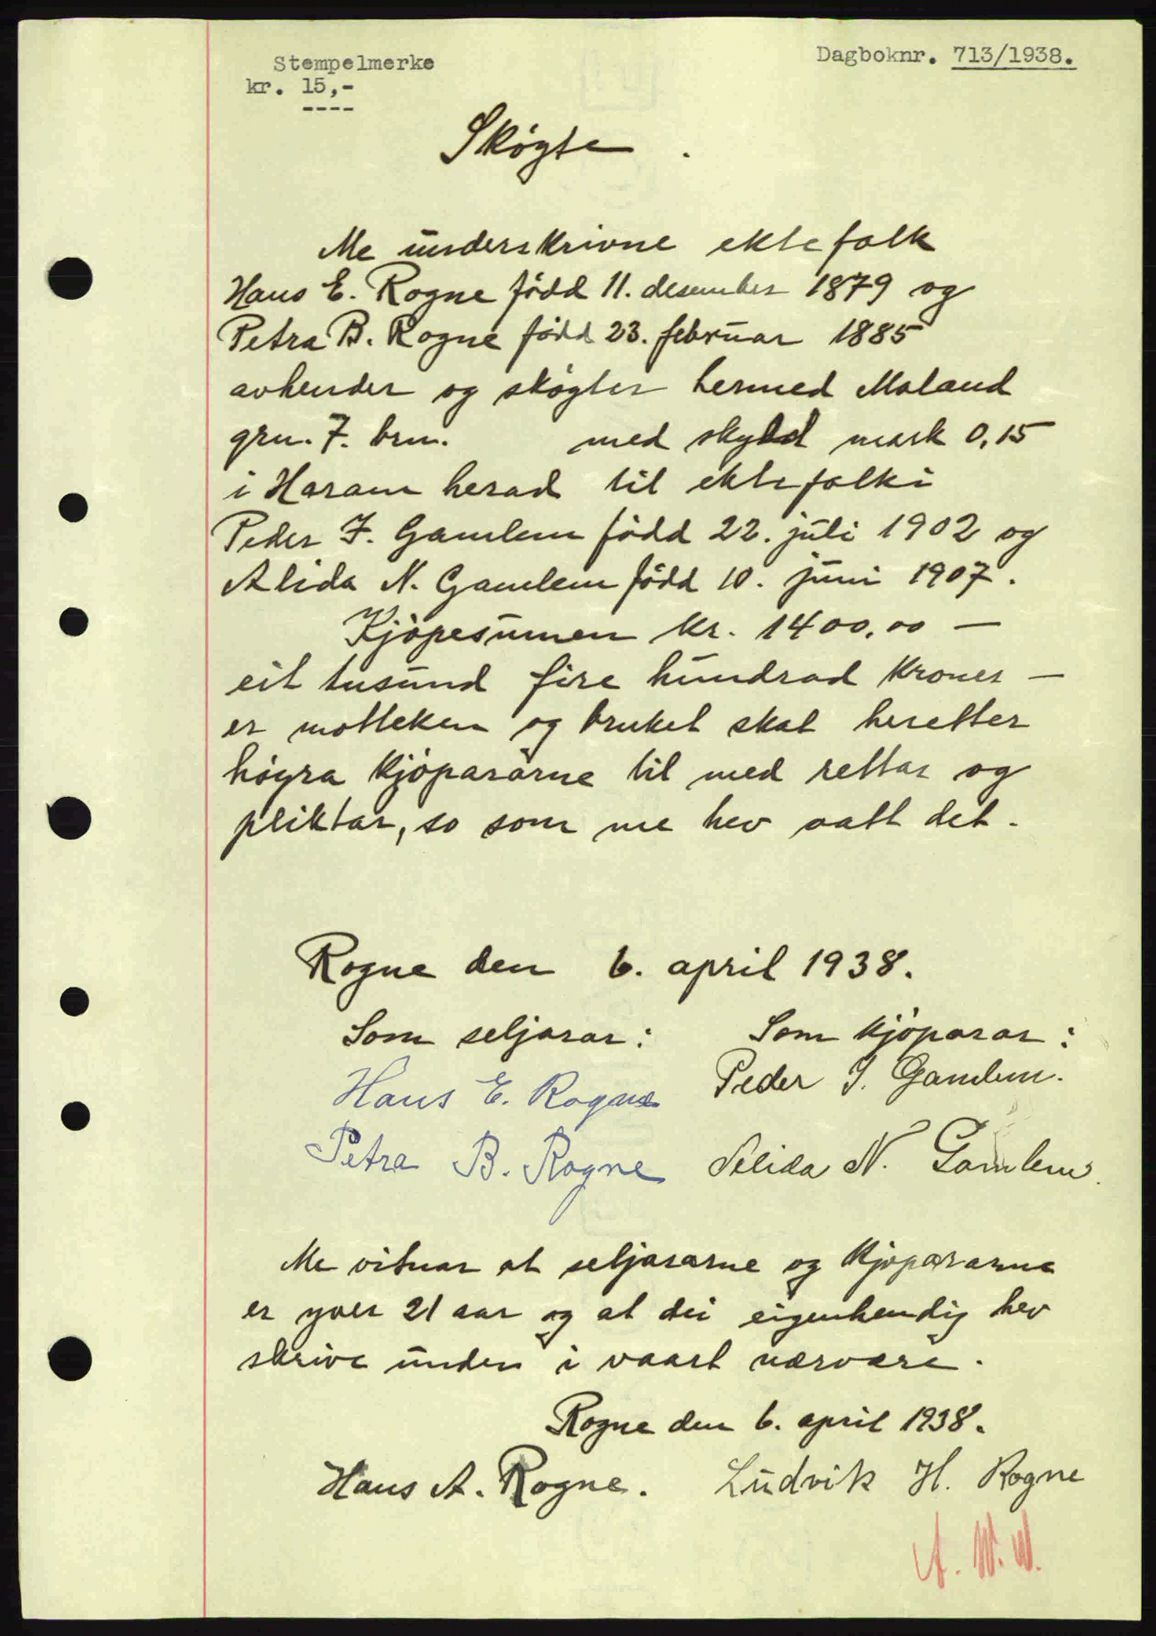 Stempelmerke
kr. 15,-
----
Dagboknr. 713/1938.
Skøgte.
Me underskrivne ektefolk
Hans E. Rogne född 11. desember 1879 og
Petra B. Rogne född 23. februar 1885
avhender og skøgter hermed Moland
grn. 7. brn. med skyld mark 0,15
i Haram herad til ektefolki
Peder I. Gamlem född 22. juli 1902 og
Alida N. Gamlem född 10. juni 1907.
Kjöpesumen kr. 1400,00 —
eit tusund fire hundrad kroner —
er motteken og bruket skal heretter
höyra kjöpararne til med rettar og
pliktar, so som me hev aatt det.
Rogne den 6. april 1938.
Som seljarar: Som kjöparar:
Hans E. Rogne Peder I. Gamlem.
Petra B. Rogne Alida N. Gamlem.
Me vitnar at seljararne og kjöpararne
er yver 21 aar og at dei eigenhendig hev
skrive under i vaart nærvære.
Rogne den 6. april 1938.
Hans A. Rogne. Ludvik H. Rogne
A. W. W.